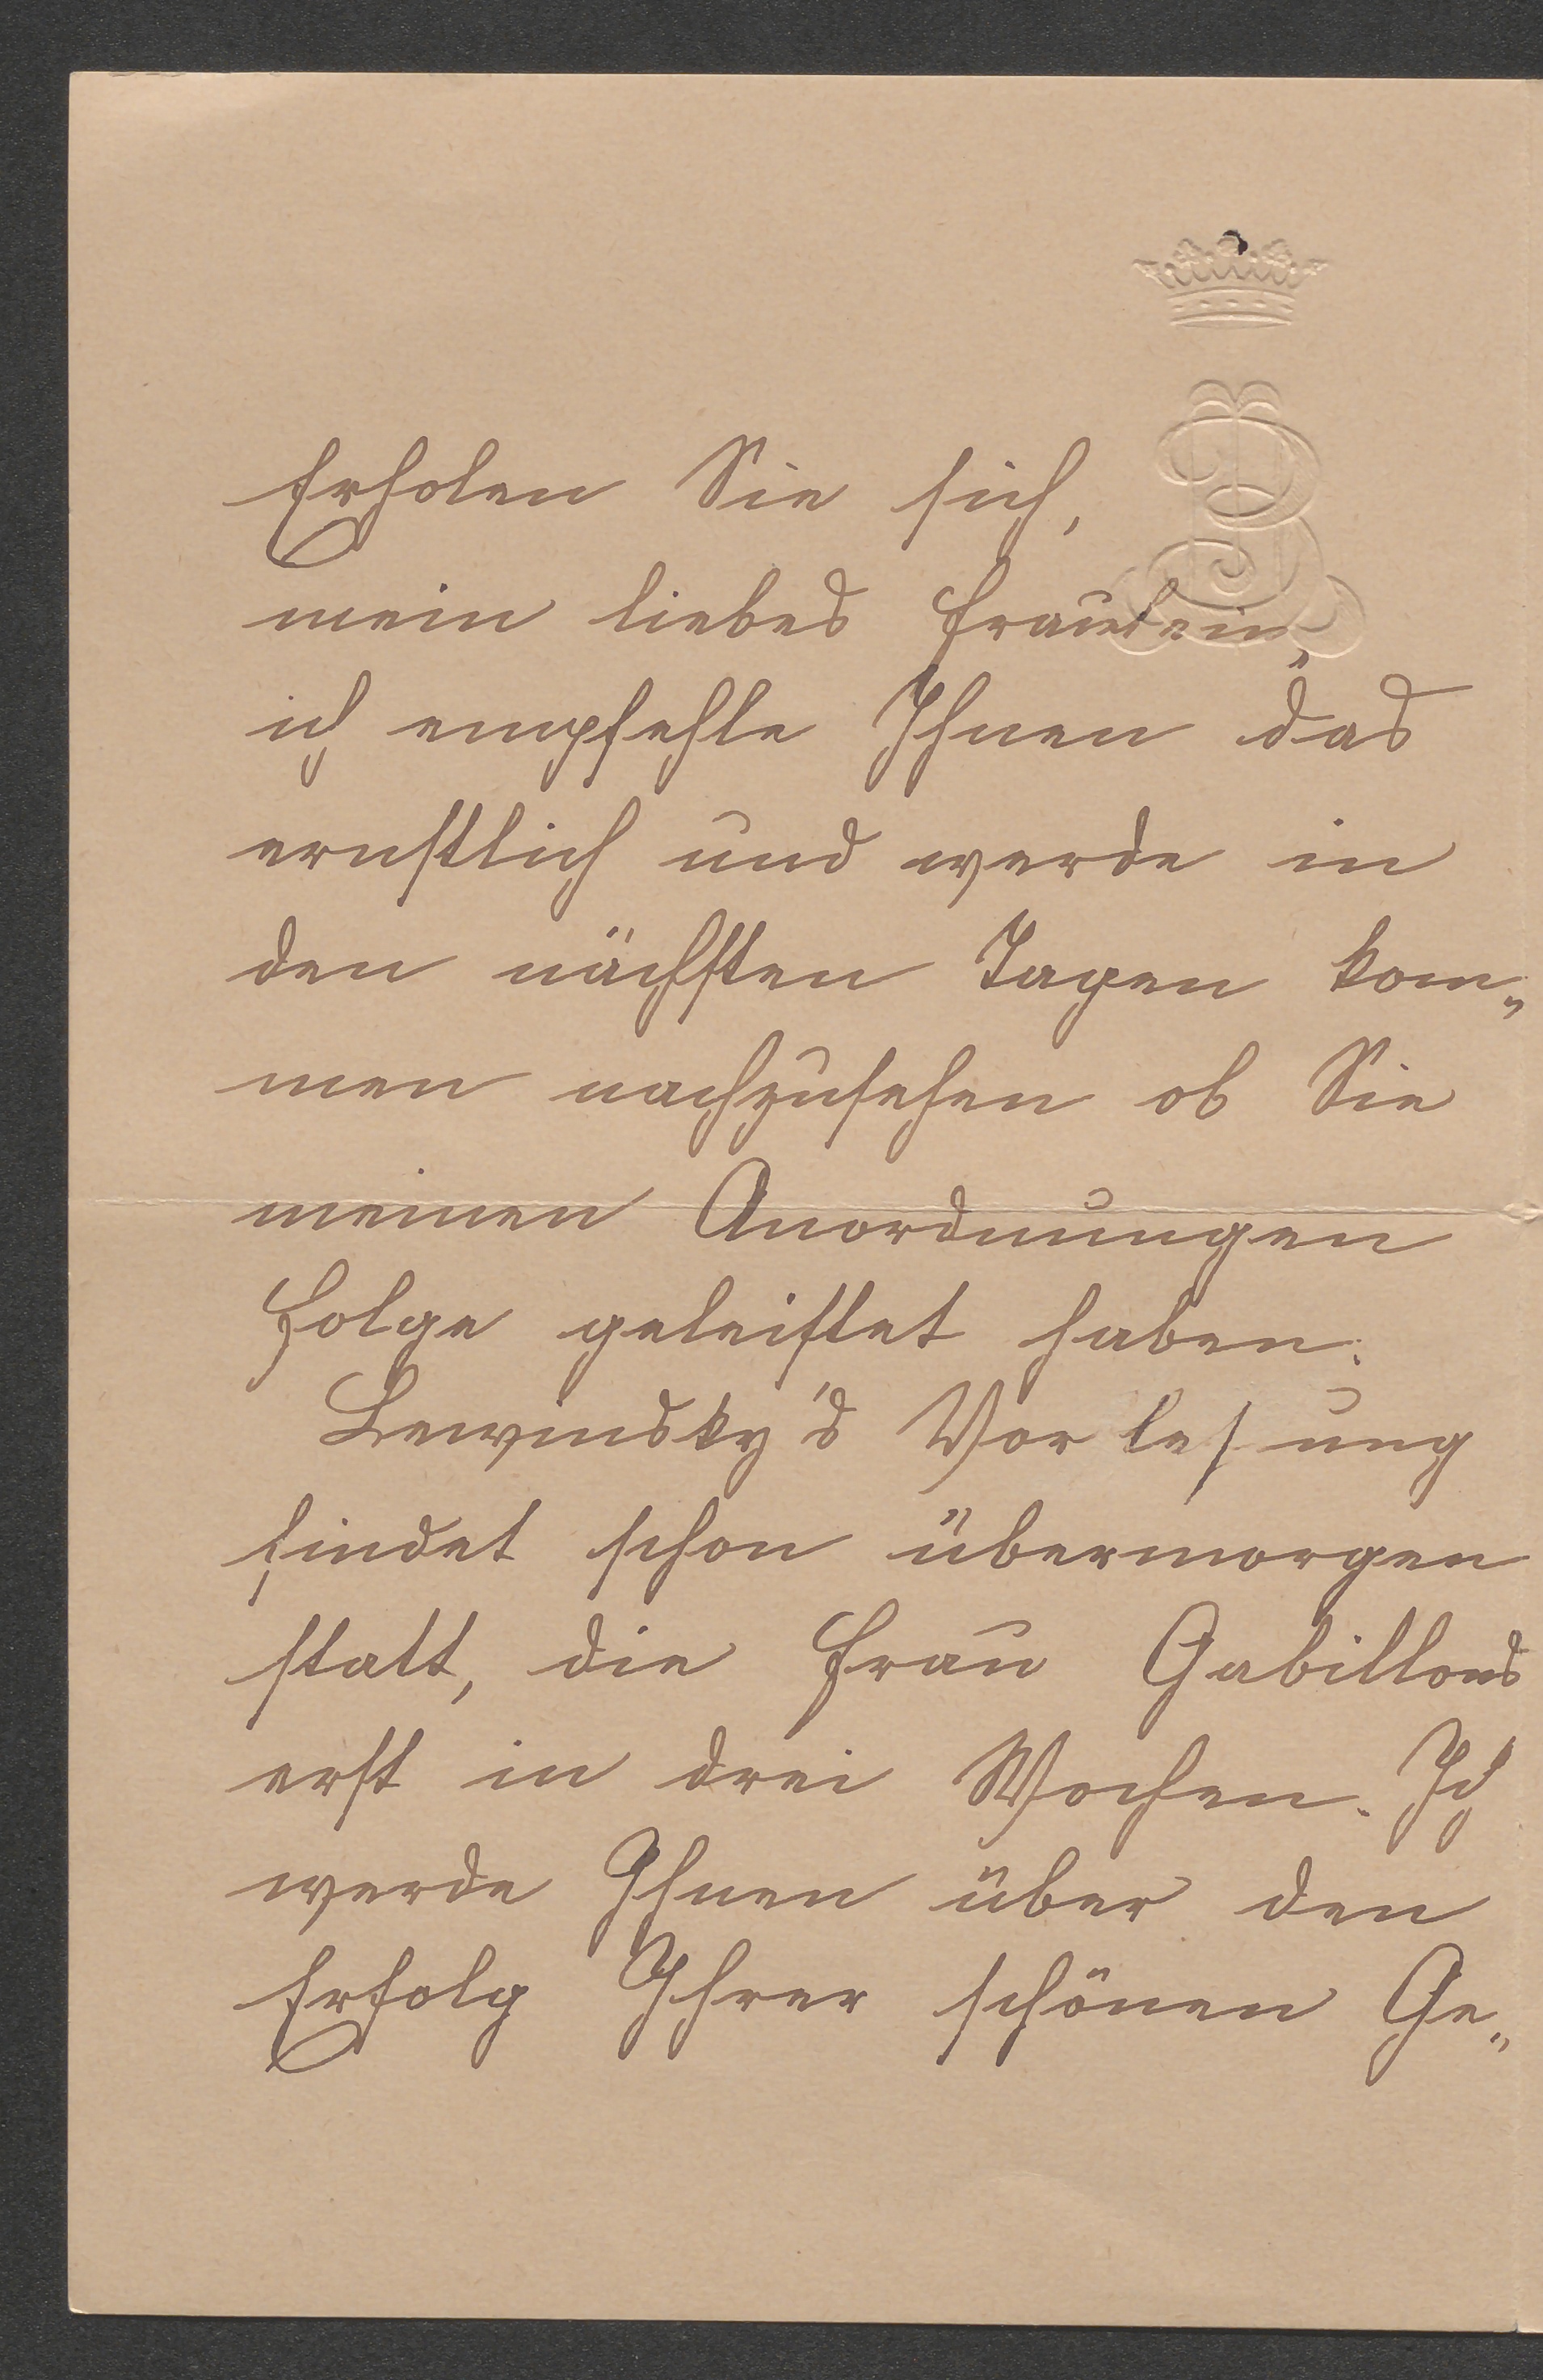 Erholen Sie sich,
mein liebes Fraulein,
ich empfehle Ihnen das
ernstlich und werde in
den nächsten Tagen kom„
men nachzusehen ob Sie
meinen Anordnungen
Folge geleistet haben.
Lewinsky's Vorlesung
findet schon übermorgen
statt, die Frau Gabillons
erst in drei Wochen. Ich
werde Ihnen über den
Erfolg Ihrer schönen Ge„